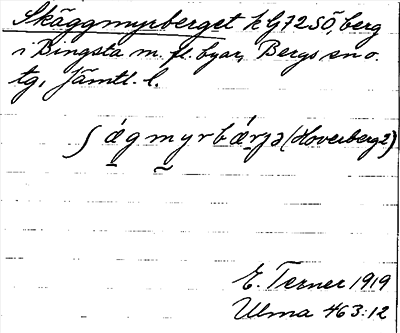 Skäggmyrberget k G 72 SÖ, berg
i Bingsta m. fl. byar, Bergs sn o.
tg, Jämtl. l.
ʃǽgmyrbǽrjə (Hoverberg 2)
E. Terner 1919
Ulma 463:12